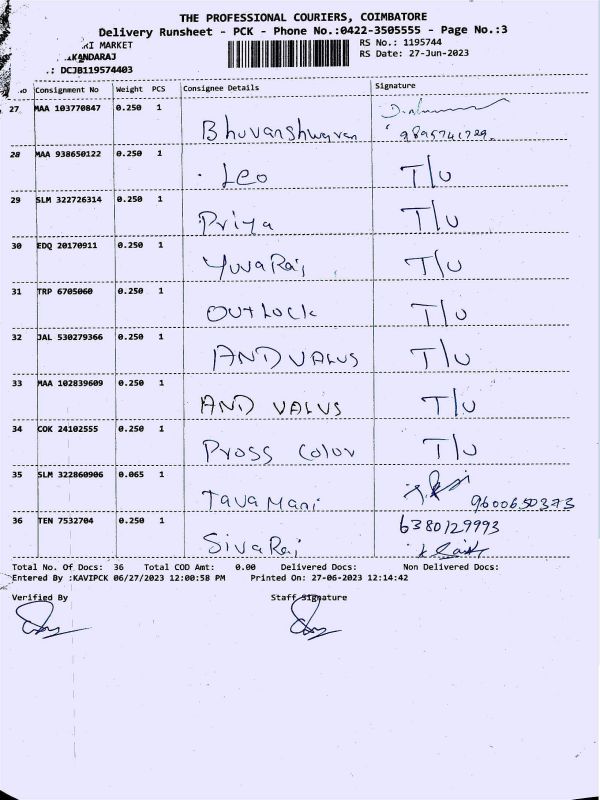 THE PROFESSIONAL COURIERS, COIMBATORE
Delivery Runsheet - PCK - Phone No.:0422-3505555 - Page No.:3
RS No.: 1195744
RI MARKET
RS Date: 27-Jun-2023
KANDARAJ
.: DCJB119574403
Consignment No Weight PCS Consignee Details Signature
27 MAA 103770847 0.250 1
Bhuvanshwaran 9895741729
28 MAA 938650122 0.250 1
Leo T/U
29 SLM 322726314 0.250 1
Priya T/U
30 EDQ 20170911 0.250 1
YuvaRaj T/U
31 TRP 6705060 0.250 1
OUTLOCK T/U
32 JAL 530279366 0.250 1
AND VALUS T/U
33 MAA 102839609 0.250 1
AND VALUS T/U
34 COK 24102555 0.250 1
Pross Color T/U
35 SLM 322860906 0.065 1
TavaMani 9600650373
36 TEN 7532704 0.250 1 6380129993
SivaRaj
Total No. Of Docs: 36 Total COD Amt: 0.00 Delivered Docs: Non Delivered Docs:
Entered By :KAVIPCK 06/27/2023 12:00:58 PM Printed On: 27-06-2023 12:14:42
Verified By Staff Signature